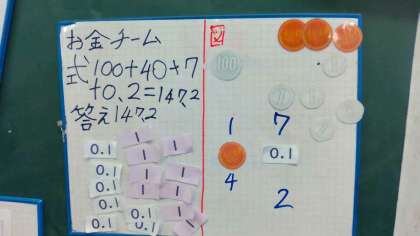 お金チーム
式100+40+7
+0.2=147.2
答え147.2
0.1 1 1
0.1 1 1
0.1 1 1
0.1 1 1
0.1 0.1 1
図
100
1 7
0.1
4
2